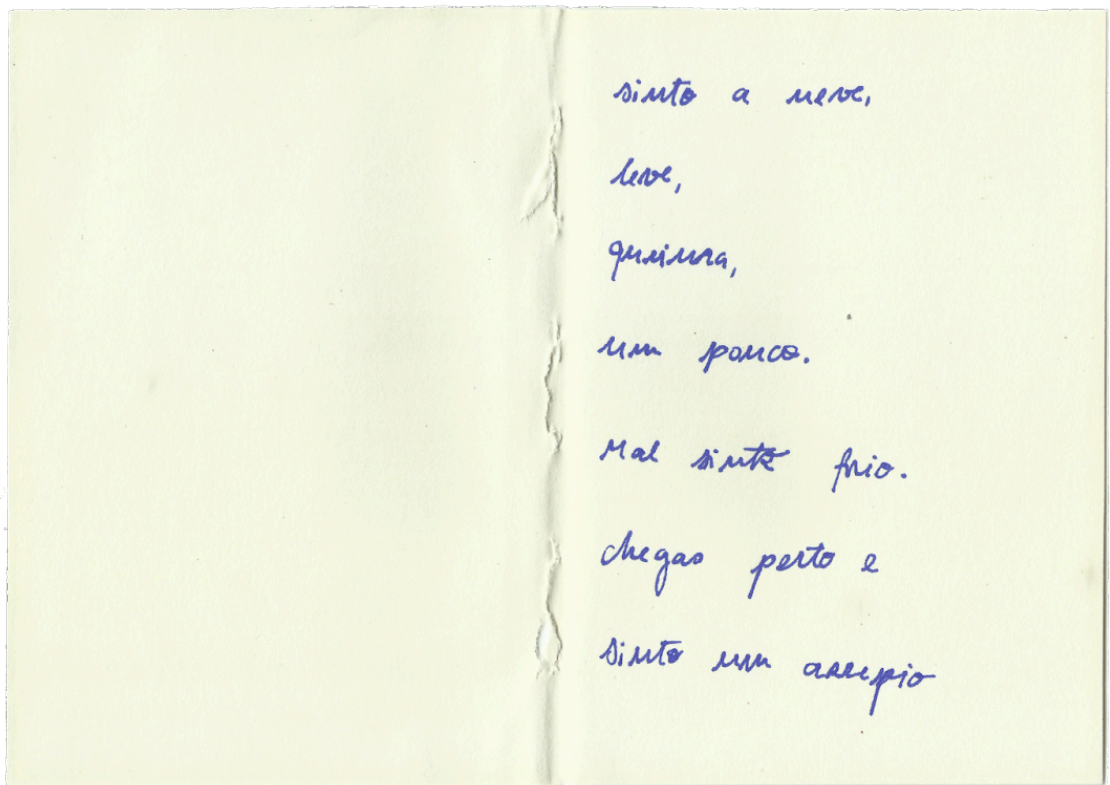 sinto a neve,
leve,
queima,
um pouco.
Mal sinto frio.
chegas perto e
sinto um arrepio